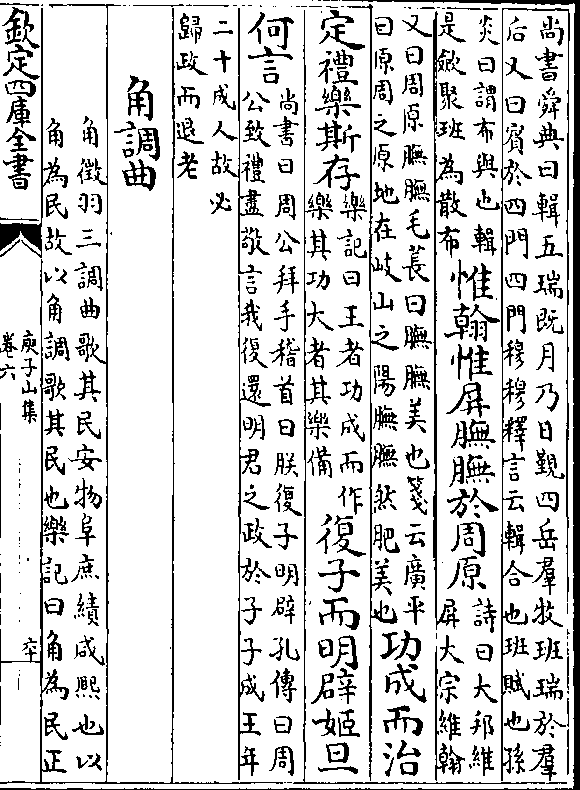 尚書舜典曰輯五瑞既月乃日覲四岳羣牧班瑞於羣
后又曰賓於四門四門穆穆釋言云輯合也班賦也孫
炎曰謂布與也輯
是斂聚班為散布
惟翰惟屏膴膴於周原
詩曰大邦維
屏大宗維翰
又曰周原膴膴毛萇曰膴膴美也箋云廣平
曰原周之原地在岐山之陽膴膴然肥美也
功成而治
定禮樂斯存
樂記曰王者功成而作
樂其功大者其樂備
復子而明辟姬旦
何言
尚書曰周公拜手稽首曰朕復子明辟孔傳曰周
公致禮盡敬言我復還明君之政於子子成王年
二十成人故必
歸政而退老
角調曲
角徵羽三調曲歌其民安物阜庶績咸熙也以
角為民故以角調歌其民也樂記曰角為民正
欽定四庫全書
庾子山集
卷六